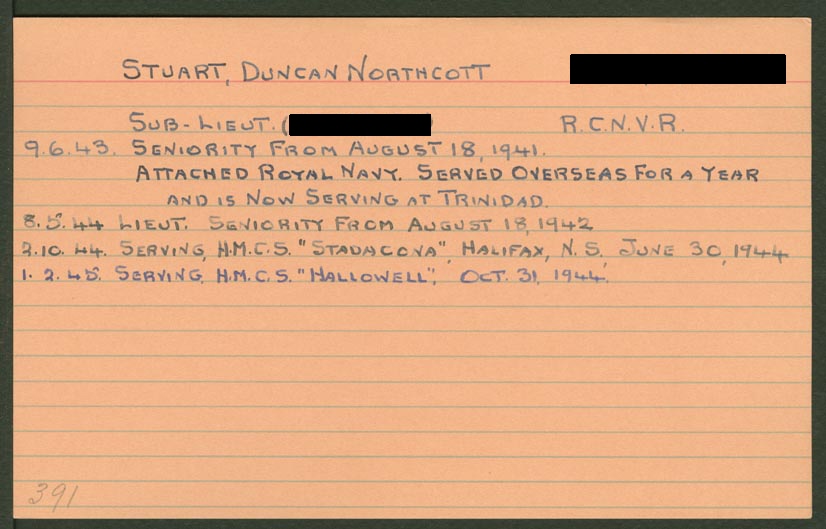 STUART, DUNCAN NORTHCOTT
SUB-LIEUT. ( R.C.N.V.R.
9.6.43. SENIORITY FROM AUGUST 18, 1941.
ATTACHED ROYAL NAVY. SERVED OVERSEAS FOR A YEAR
AND IS NOW SERVING AT TRINIDAD.
8.5.44 LIEUT. SENIORITY FROM AUGUST 18, 1942
2.10.44. SERVING, H.M.C.S. "STADACONA", HALIFAX, N.S., JUNE 30, 1944
1.2.45. SERVING, H.M.C.S. "HALLOWELL", OCT. 31, 1944.
391